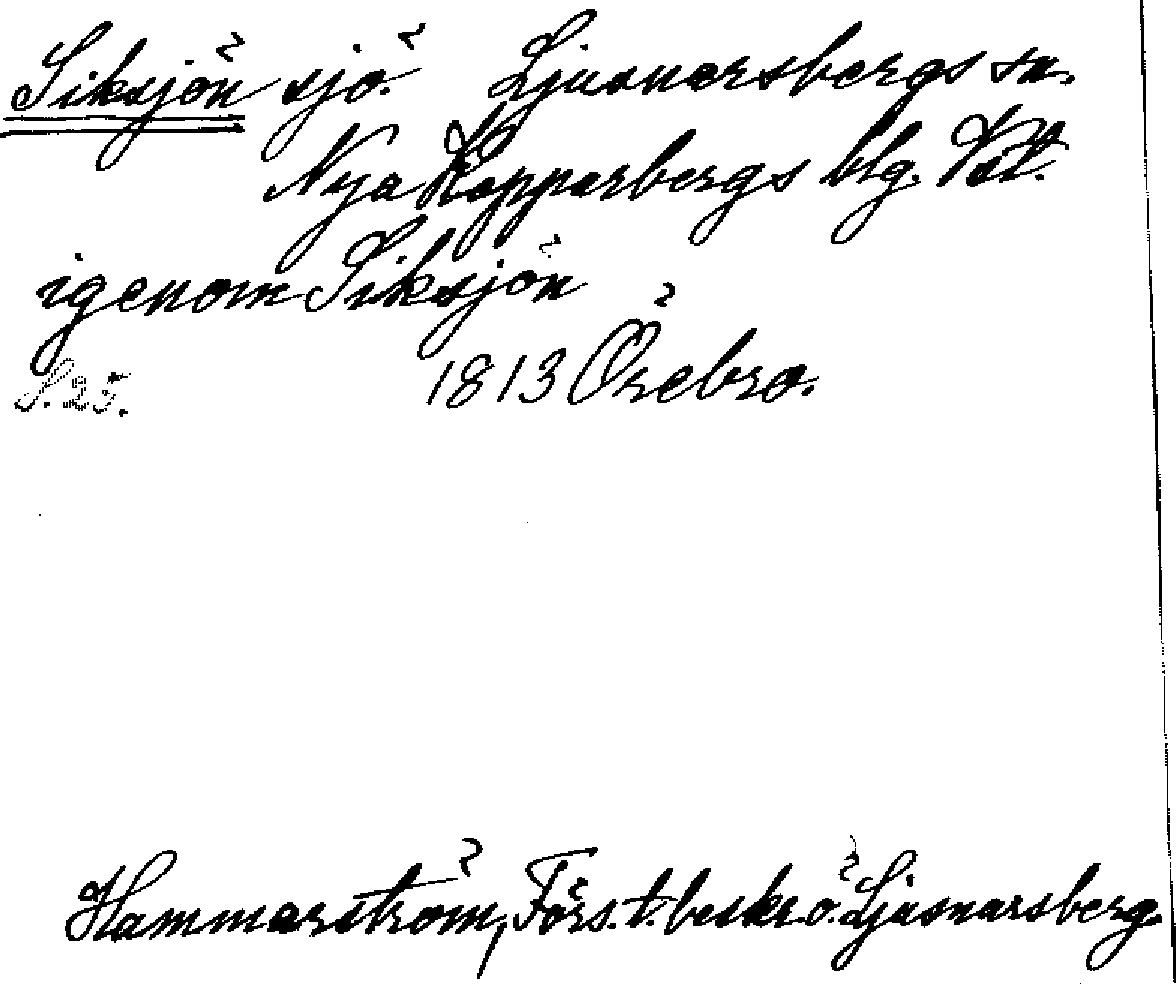 Siksjön sjö. Ljusnarsbergs sn.
Nya Kopparbergs blg. Väst.
igenom Siksjön
S. 25. 1813 Örebro.
Hammarström, Förs. t. beskr. ö. Ljusnarsberg.